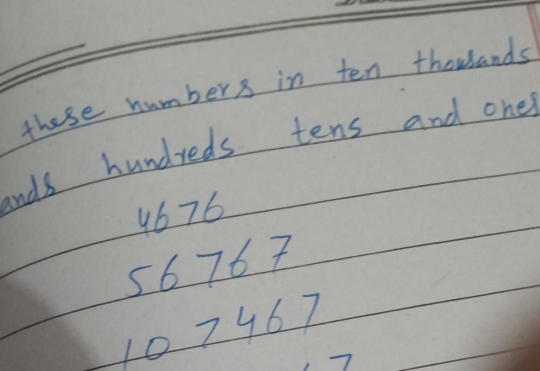 these numbers in ten thousands
ands hundreds tens and ones
4676
56767
107467
7